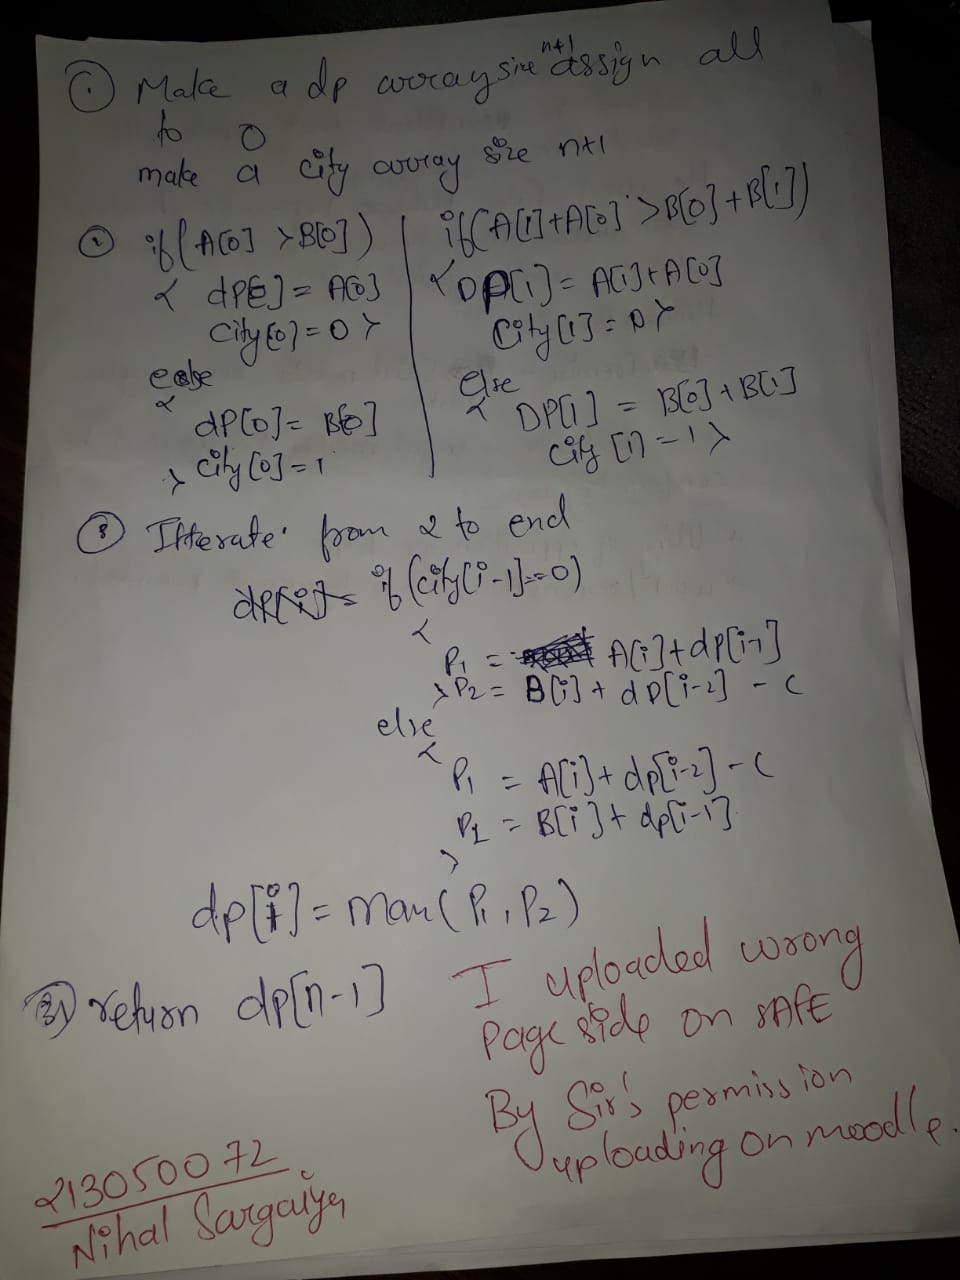 ① Make a dp array size n+1 assign all
to 0
make a city array size n+1
② if(A[0] >B[0])
{ dp[0] = A[0]
city[0] = 0 }
else
{
dp[0] = B[0]
} city[0] = 1
if(A[1]+A[0] > B[0]+B[1])
{ DP[1] = A[1]+A[0]
City[1] = 0 }
Else
{ DP[1] = B[0]+B[1]
city [1] = 1 }
③ Itterate from 2 to end
if (city[i-1]==0)
{
P1 = A[i]+dp[i-1]
} P2 = B[i] + dp[i-2] - C
else
{
P1 = A[i]+ dp[i-2] - C
P2 = B[i]+ dp[i-1]
}
dp[i] = max( P1, P2)
return dp[n-1]
I uploaded wrong
page side on SAFE
By Sir's permission
uploading on moodle.
213050072
Nihal Sargaiya